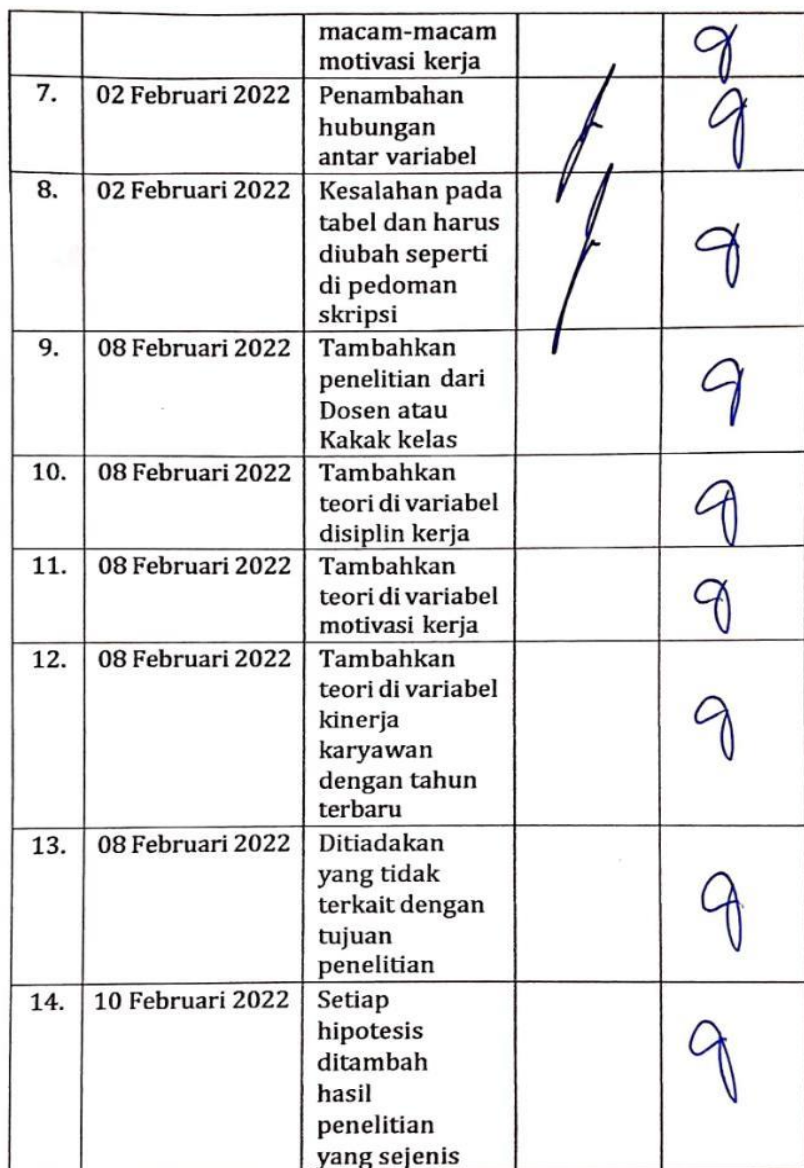 macam-macam
motivasi kerja
7. 02 Februari 2022 Penambahan
hubungan
antar variabel
8. 02 Februari 2022 Kesalahan pada
tabel dan harus
diubah seperti
di pedoman
skripsi
9. 08 Februari 2022 Tambahkan
penelitian dari
Dosen atau
Kakak kelas
10. 08 Februari 2022 Tambahkan
teori di variabel
disiplin kerja
11. 08 Februari 2022 Tambahkan
teori di variabel
motivasi kerja
12. 08 Februari 2022 Tambahkan
teori di variabel
kinerja
karyawan
dengan tahun
terbaru
13. 08 Februari 2022 Ditiadakan
yang tidak
terkait dengan
tujuan
penelitian
14. 10 Februari 2022 Setiap
hipotesis
ditambah
hasil
penelitian
yang sejenis